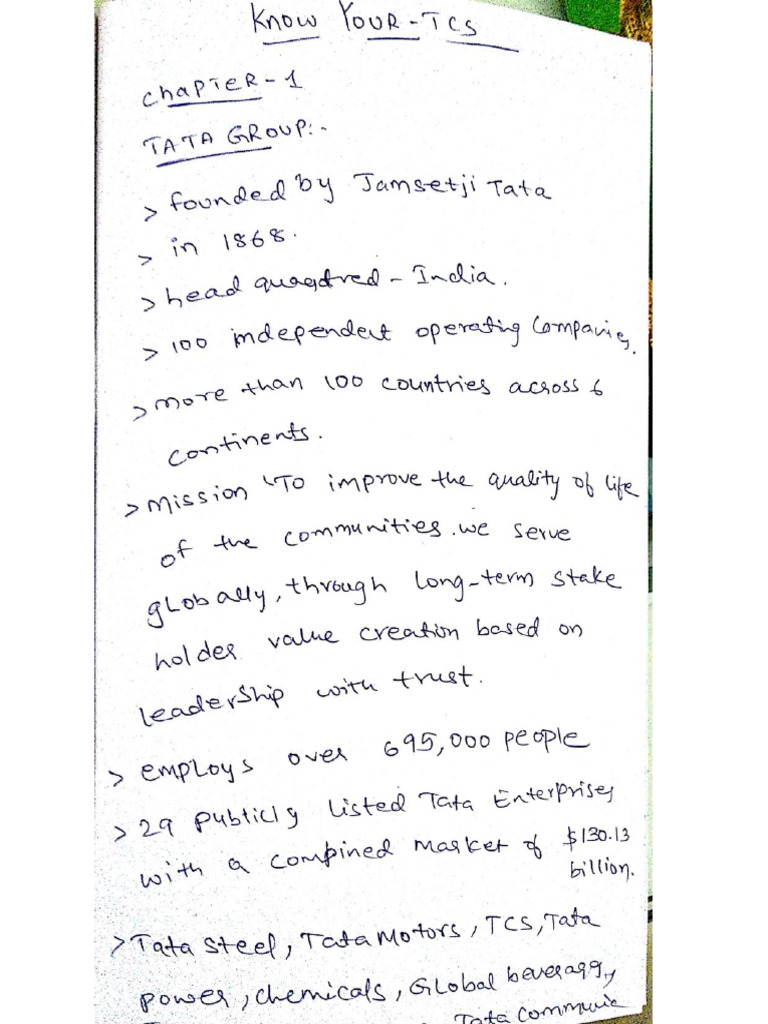 Know Your-TCS
Chapter-1
TATA GROUP:-
> founded by Jamsetji Tata
> in 1868.
> head quartred - India.
> 100 independent operating Companies.
> more than 100 countries across 6
continents.
> mission "To improve the quality of life
of the communities. we serve
globally, through long-term stake
holder value creation based on
leadership with trust.
> employs over 695,000 people
> 29 publicly listed Tata Enterprises
with a compined market of $130.13
billion.
> Tata steel, Tata Motors, TCS, Tata
power, chemicals, Global beverages,
Tata Communic